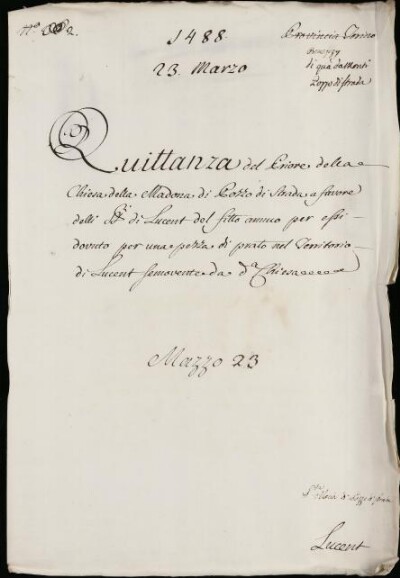 1488.
Provincia Torino
23. Marzo
di qua da Monti
Pozzo di strada
Quittanza del Priore della
Chiesa della Madona di Pozzo di Strada a favore
delli SS.ri di Lucent del fitto annuo per essi
dovuto per una pezza di prato nel Territorio
di Lucent semovente da d.a Chiesa
Mazzo 23
Lucent